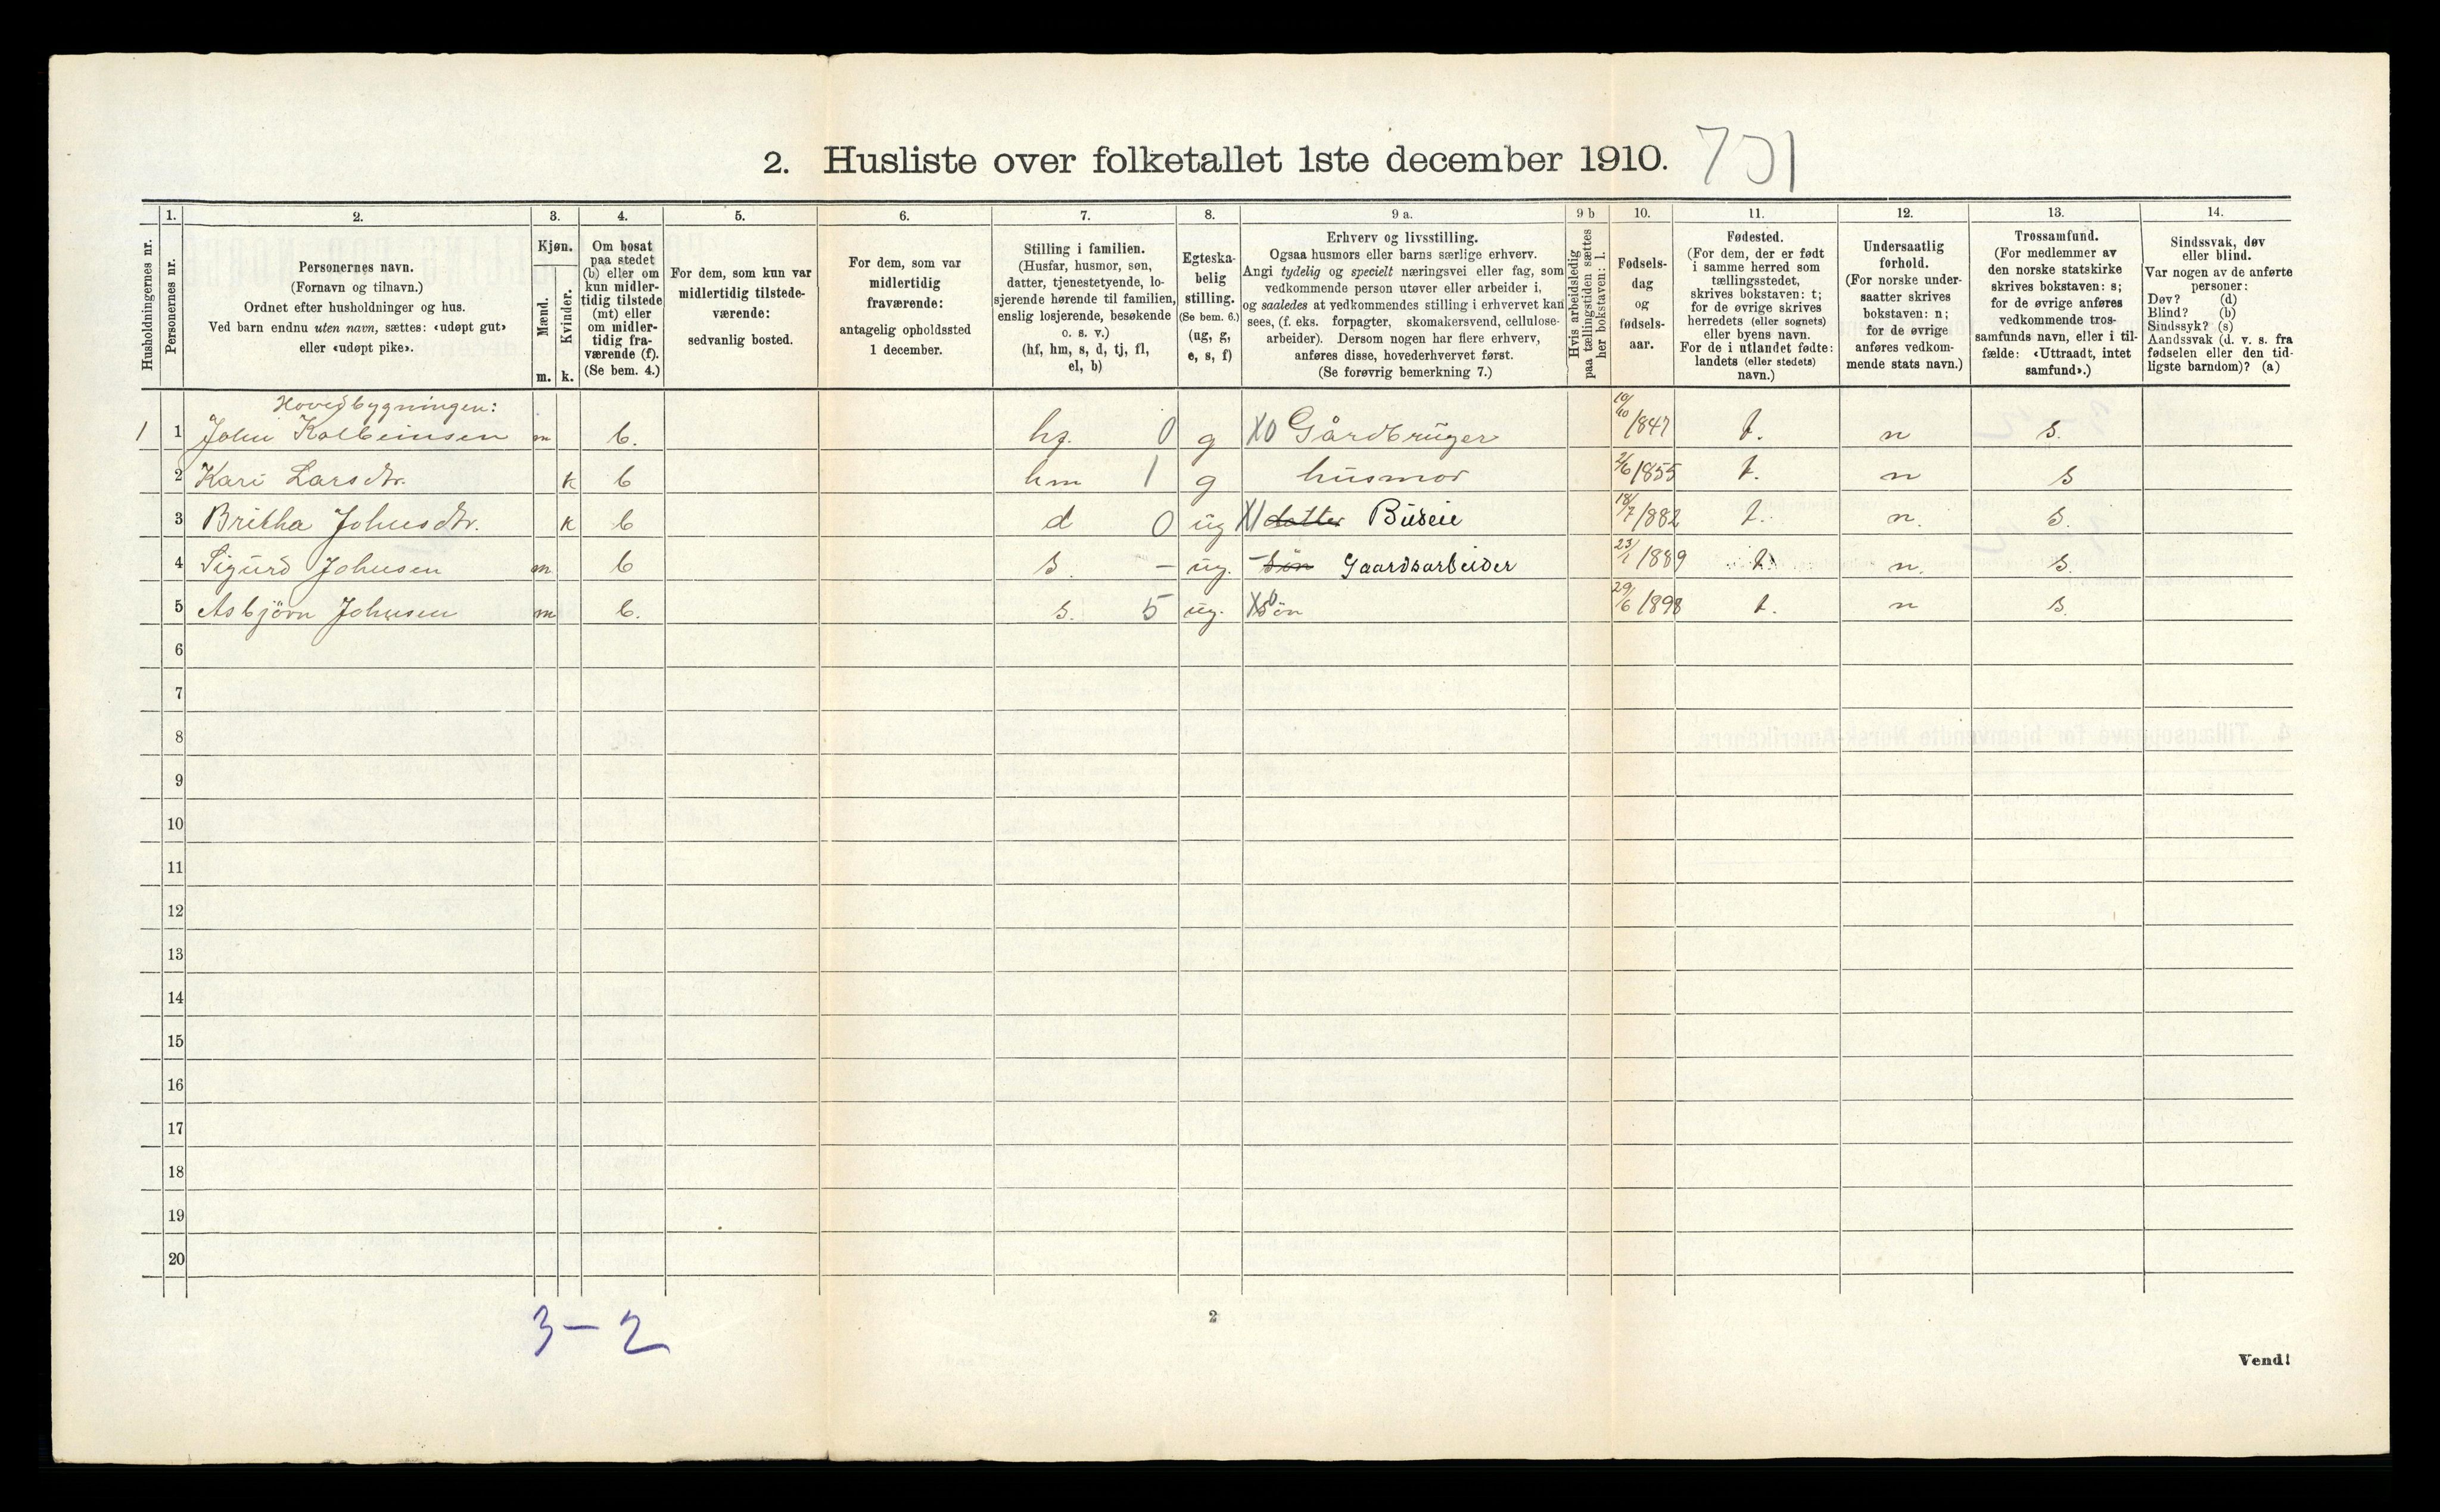 2. Husliste over folketallet 1ste december 1910.
Husholdningernes nr.
1.
Personernes nr.
2.
Personernes navn.
(Fornavn og tilnavn.)
Ordnet efter husholdninger og hus.
Ved barn endnu uten navn, sættes: «udøpt gut»
eller «udøpt pike».
3.
Kjøn.
Mænd.
Kvinder.
m. k.
4.
Om bosat
paa stedet
(b) eller om
kun midler-
tidig tilstede
(mt) eller
om midler-
tidig fra-
værende (f).
(Se bem. 4.)
5.
For dem, som kun var
midlertidig tilstede-
værende:
sedvanlig bosted.
6.
For dem, som var
midlertidig
fraværende:
antagelig opholdssted
1 december.
7.
Stilling i familien.
(Husfar, husmor, søn,
datter, tjenestetyende, lo-
sjerende hørende til familien,
enslig losjerende, besøkende
o. s. v.)
(hf, hm, s, d, tj, fl,
el, b)
8.
Egteska-
belig
stilling.
(Se bem. 6.)
(ug, g,
e, s, f)
9 a.
Erhverv og livsstilling.
Ogsaa husmors eller barns særlige erhverv.
Angi tydelig og specielt næringsvei eller fag, som
vedkommende person utøver eller arbeider i,
og saaledes at vedkommendes stilling i erhvervet kan
sees, (f. eks. forpagter, skomakersvend, cellulose-
arbeider). Dersom nogen har flere erhverv,
anføres disse, hovederhvervet først.
(Se forøvrig bemerkning 7.)
9 b
Hvis arbeidsledig
paa tællingstiden sættes
her bokstaven: l.
10.
Fødsels-
dag
og
fødsels-
aar.
11.
Fødested.
(For dem, der er født
i samme herred som
tællingsstedet,
skrives bokstaven: t;
for de øvrige skrives
herredets (eller sognets)
eller byens navn.
For de i utlandet fødte:
landets (eller stedets)
navn.)
12.
Undersaatlig
forhold.
(For norske under-
saatter skrives
bokstaven: n;
for de øvrige
anføres vedkom-
mende stats navn.)
13.
Trossamfund.
(For medlemmer av
den norske statskirke
skrives bokstaven: s;
for de øvrige anføres
vedkommende tros-
samfunds navn, eller i til-
fælde: «Uttraadt, intet
samfund».)
14.
Sindssvak, døv
eller blind.
Var nogen av de anførte
personer:
Døv? (d)
Blind? (b)
Sindssyk? (s)
Aandssvak (d. v. s. fra
fødselen eller den tid-
ligste barndom)? (a)
Hovedbygningen:
1 1 John Kolbeinsen m b. hf. 0 g X0 Gårdbruger 10/10 1847 t. n s.
2 Kari Larsdtr. k b hm 1 g husmor 2/6 1855 t. n s
3 Britha Johnsdtr. k b d 0 ug X1 datter Buseie 18/7 1882 t. n. s.
4 Sigurd Johnsen m b s. - ug. - søn Gaardsarbeider 23/1 1889 t. n. s.
5 Asbjörn Johnsen m b. s. 5 ug. X0 søn 29/6 1898 t. n s.
6
7
8
9
10
11
12
13
14
15
16
17
18
19
20
3 - 2
2
Vend!